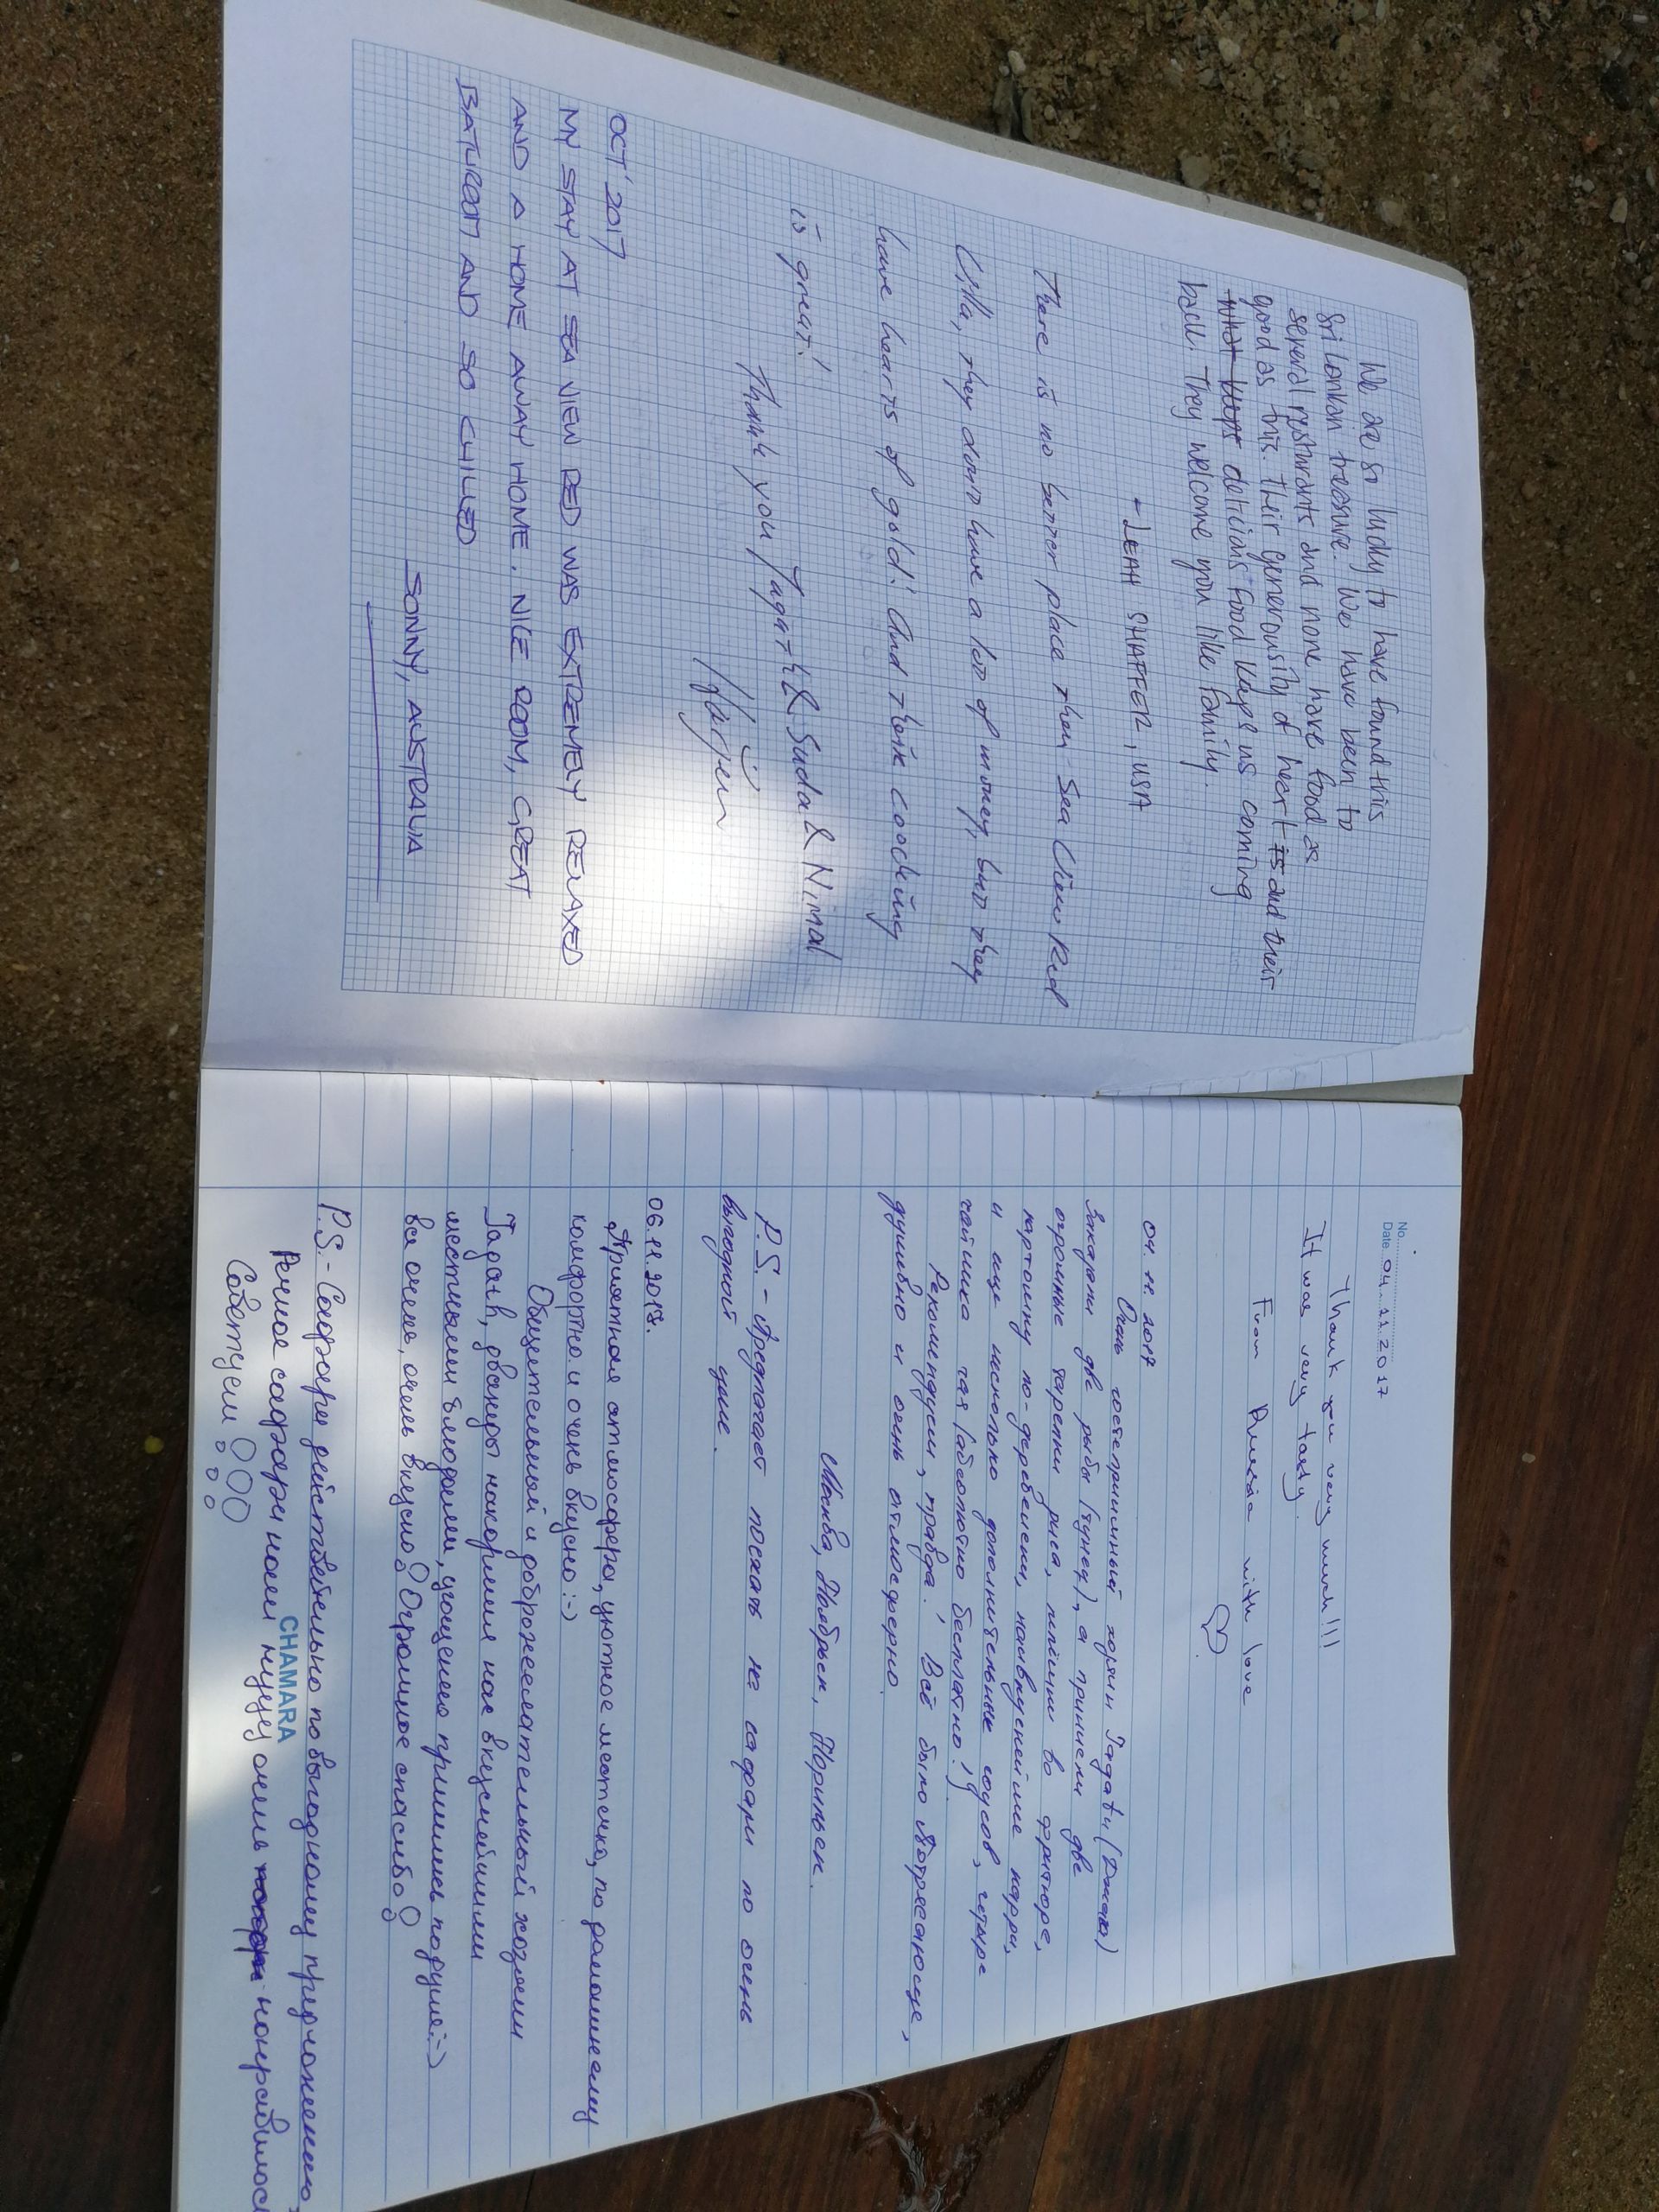 We are so lucky to have found this
Sri Lankan treasure. We have been to
several resturants and none have food as
good as this. Their generousity of heart is and their
what keeps delicious food keeps us coming
back. They welcome you like family.
- LEAH SHAFFER, USA
There is no better place then Sea View Red
Villa, they don't have a lot of money, but they
have hearts of gold! And their coocking
is great!
Thank you Jagath & Suda & Nimal
Marjen
OCT' 2017
MY STAY AT SEA VIEW RED WAS EXTREMELY RELAXED
AND A HOME AWAY HOME. NICE ROOM, GREAT
BATHROOM AND SO CHILLED
SONNY, AUSTRALIA
No.
Date 04.11.2017
Thank you very much!!!
It was very tasty.
From Russia with love
04.11.2017
Очень гостеприимный хозяин Jagath (Джага)
Заказали две рыбы (тунец), а принесли две
огромные тарелки риса, в фритюре,
картошку по-деревенски, наивкуснейшие карри,
и еще несколько дополнительных соусов, четыре
чайника чая (абсолютно бесплатно!)
Рекомендуем, правда! Всё было потрясающе,
душевно и очень атмосферно.
Москва, Ноябрьск, Норильск.
P.S. - Предлагает поехать на сафари по очень
выгодной цене.
06.11.2017.
Приятная атмосфера, уютное местечко, по домашнему
комфортно и очень вкусно :-)
Общительный и доброжелательный хозяин
Jagath, дважды накормил нас вкуснейшими
местными блюдами, угощения пришлись по душе :-)
Все очень, очень вкусно! Огромное спасибо!
P.S. - Сафари действительно по выгодному предложению,
Речное сафари нам нужду очень понравилось
Советуем!!!
CHAMARA